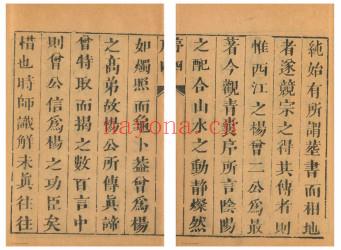 純始有所謂葬書而相地
者遂競宗之得其傳者則
惟西江之楊曾二公爲㝡
著今觀青囊序所言陰陽
之配合山水之動靜燦然
如燭照而龜卜蓋曾爲楊
之高弟故楊公所傳真諦
曾特取而揭之數百言中
則曾公信爲楊之功臣矣
惜也時師識解未真往往
nayona.cn